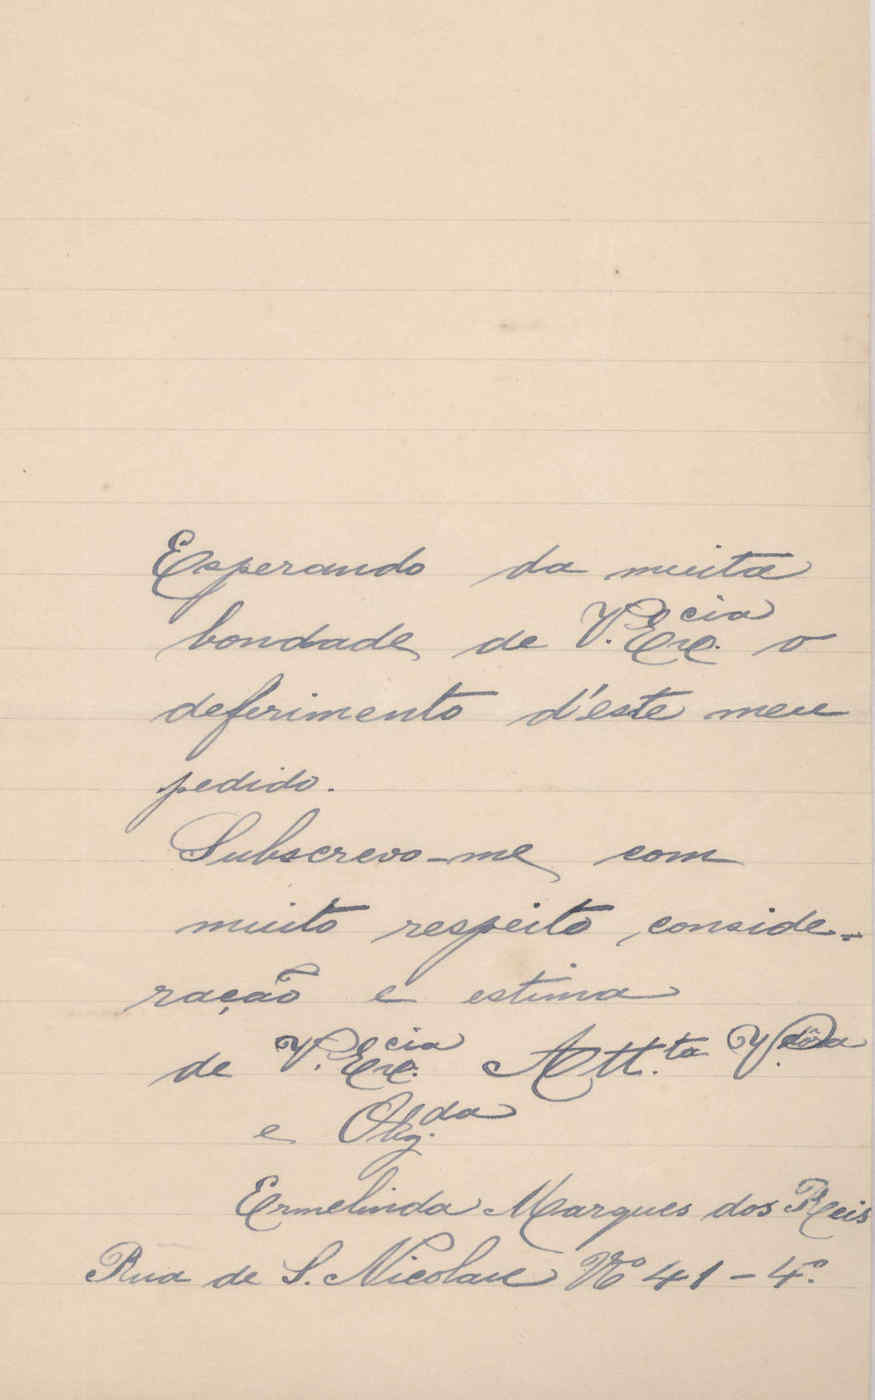 Esperando da muita
bondade de V. Exc.cia o
deferimento d'este meu
pedido.
Subscrevo-me com
muito respeito, conside-
ração e estima
de V. Exc.cia Att.ta V.dôra
e Obg.da
Ermelinda Marques dos Reis
Rua de S. Nicolau Nº 41 - 4.º